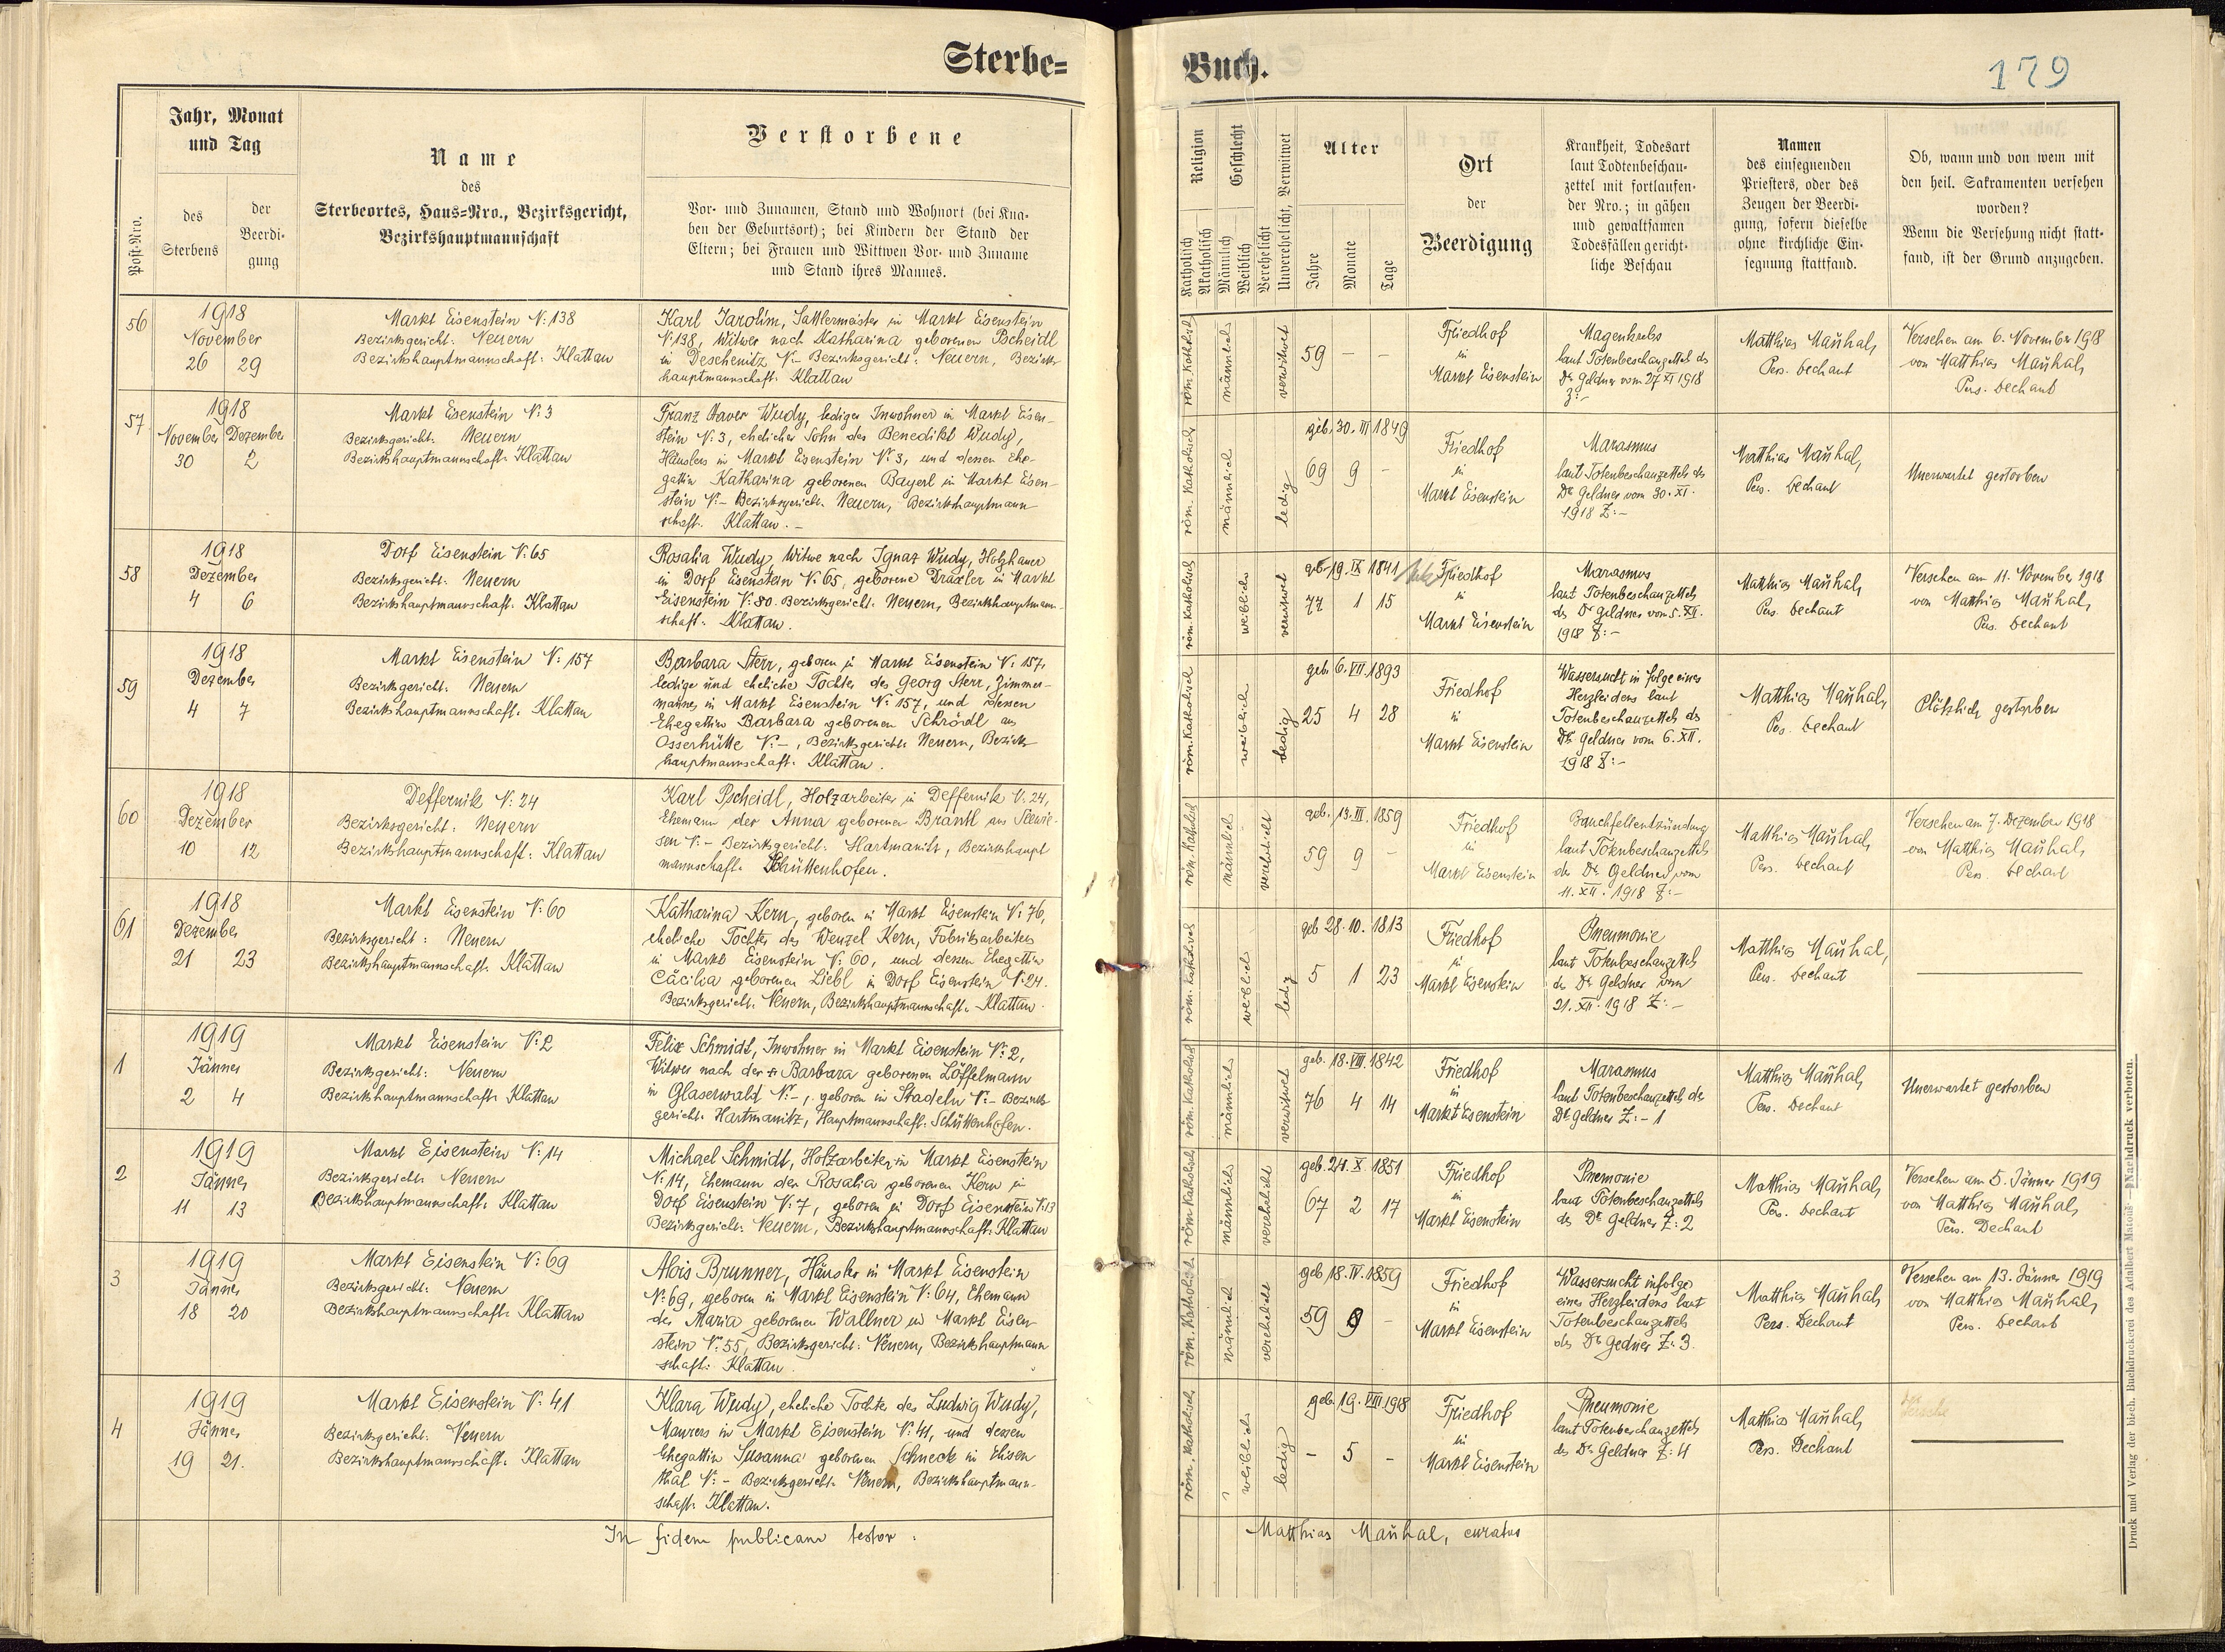 Sterbe=
Buch.
179
Post-Nro.
Jahr, Monat
und Tag
des
Sterbens
der
Beerdi-
gung
Name
des
Sterbeortes, Haus=Nro., Bezirksgericht,
Bezirkshauptmannschaft
Verstorbene
Vor- und Zunamen, Stand und Wohnort (bei Kna-
ben der Geburtsort); bei Kindern der Stand der
Eltern; bei Frauen und Wittwen Vor- und Zuname
und Stand ihres Mannes.
Religion
Katholisch
Akatholisch
Geschlecht
Männlich
Weiblich
Verehelicht
Unverehelicht, Verwitwet
Alter
Jahre
Monate
Tage
Ort
der
Beerdigung
Krankheit, Todesart
laut Todtenbeschau-
zettel mit fortlaufen-
der Nro.; in gähen
und gewaltsamen
Todesfällen gericht-
liche Beschau
Namen
des einsegnenden
Priesters, oder des
Zeugen der Beerdi-
gung, sofern dieselbe
ohne kirchliche Ein-
segnung stattfand.
Ob, wann und von wem mit
den heil. Sakramenten versehen
worden?
Wenn die Versehung nicht statt-
fand, ist der Grund anzugeben.
56
1918
November
26 29
Markt Eisenstein N: 138
Bezirksgericht: Neuern
Bezirkshauptmannschaft: Klattau
Karl Jarolim, Sattlermeister in Markt Eisenstein
N: 138, Witwer nach Katharina geborenen Pscheidl
in Deschenitz N:- Bezirksgericht: Neuern, Bezirks-
hauptmannschaft: Klattau
röm. Kathol.
männlich
verwitwet
59 - -
Friedhof
in
Markt Eisenstein
Magenkrebs
laut Totenbeschauzettel des
Dr. Geldner vom 27 XI 1918
Z:-
Matthias Maŭhal,
Pers. Dechant
Versehen am 6. November 1918
von Matthias Maŭhal,
Pers. Dechant
57
1918
November Dezember
30 2
Markt Eisenstein N: 3
Bezirksgericht: Neuern
Bezirkshauptmannschaft: Klattau
Franz Xaver Wudy, lediger Inwohner in Markt Eisen-
stein N: 3, ehelicher Sohn des Benedikt Wudy,
Häuslers in Markt Eisenstein N: 3, und dessen Ehe-
gattin Katharina geborenen Bayerl in Markt Eisen-
stein N:- Bezirksgericht: Neuern, Bezirkshauptmann-
schaft: Klattau.-
röm. Katholisch
männlich
ledig
geb. 30. III 1849
69 9 -
Friedhof
in
Markt Eisenstein
Marasmus
laut Totenbeschauzettels des
Dr. Geldner vom 30. XI.
1918 Z:-
Matthias Maŭhal,
Pers. Dechant
Unerwartet gestorben
58
1918
Dezember
4 6
Dorf Eisenstein N: 65
Bezirksgericht: Neuern
Bezirkshauptmannschaft: Klattau
Rosalia Wudy, Witwe nach Ignaz Wudy, Holzhauer
in Dorf Eisenstein N: 65, geborene Draxler in Markt
Eisenstein N: 80. Bezirksgericht: Neuern, Bezirkshauptmann-
schaft: Klattau.
röm. Katholisch
weiblich
verwitwet
geb. 19. IX 1841
77 1 15
Friedhof
in
Markt Eisenstein
Marasmus
laut Totenbeschauzettels
des Dr. Geldner vom 5. XII.
1918 Z:-
Matthias Maŭhal,
Pers. Dechant
Versehen am 11. November 1918
von Matthias Maŭhal,
Pers. Dechant
59
1918
Dezember
4 7
Markt Eisenstein N: 157
Bezirksgericht: Neuern
Bezirkshauptmannschaft: Klattau
Barbara Sterr, geboren in Markt Eisenstein N: 157,
ledige und eheliche Tochter des Georg Sterr, Zimmer-
mannes in Markt Eisenstein N: 157, und dessen
Ehegattin Barbara geborenen Schrödl aus
Osserhütte N:-, Bezirksgericht: Neuern, Bezirks-
hauptmannschaft: Klattau.
röm. Katholisch
weiblich
ledig
geb. 6. VII. 1893
25 4 28
Friedhof
in
Markt Eisenstein
Wassersucht in folge eines
Herzleidens laut
Totenbeschauzettels des
Dr. Geldner vom 6. XII.
1918 Z:-
Matthias Maŭhal,
Pers. Dechant
Plötzlich gestorben
60
1918
Dezember
10 12
Deffernik N: 24
Bezirksgericht: Neuern
Bezirkshauptmannschaft: Klattau
Karl Pscheidl, Holzarbeiter in Deffernik N: 24,
Ehemann der Anna geborenen Brantl aus Seewie-
sen N:- Bezirksgericht: Hartmanitz, Bezirkshaupt
mannschaft: Schüttenhofen.
röm. Kathol.
männlich
verehelicht
geb. 13. III. 1859
59 9 -
Friedhof
in
Markt Eisenstein
Bauchfellentzündung
laut Totenbeschauzettels
des Dr. Geldner vom
11. XII. 1918 Z:-
Matthias Maŭhal,
Pers. Dechant
Versehen am 7. Dezember 1918
von Matthias Maŭhal,
Pers. Dechant
61
1918
Dezember
21 23
Markt Eisenstein N: 60
Bezirksgericht: Neuern
Bezirkshauptmannschaft: Klattau
Katharina Kern, geboren in Markt Eisenstein N: 76,
eheliche Tochter des Wenzel Kern, Fabriksarbeiters
in Markt Eisenstein N: 60, und dessen Ehegattin
Cäcilia geborenen Liebl in Dorf Eisenstein N: 24.
Bezirksgericht: Neuern, Bezirkshauptmannschaft: Klattau.
röm. Katholisch
weiblich
ledig
geb 28. 10. 1813
5 1 23
Friedhof
in
Markt Eisenstein
Pneumonie
laut Totenbeschauzettels
des Dr. Geldner vom
21. XII. 1918 Z:-
Matthias Maŭhal,
Pers. Dechant
1
1919
Jänner
2 4
Markt Eisenstein N: 2
Bezirksgericht: Neuern
Bezirkshauptmannschaft: Klattau
Felix Schmidt, Inwohner in Markt Eisenstein N: 2,
Witwer nach der + Barbara geborenen Löffelmann
in Glaserwald N:-, geboren in Stadeln N:- Bezirks-
gericht: Hartmanitz, Hauptmannschaft: Schüttenhofen.
röm. Katholisch
männlich
verwitwet
geb. 18. VIII. 1842
76 4 14
Friedhof
in
Markt Eisenstein
Marasmus
laut Totenbeschauzettels des
Dr. Geldner Z:- 1
Matthias Maŭhal,
Pers. Dechant
Unerwartet gestorben
2
1919
Jänner
11 13
Markt Eisenstein N: 14
Bezirksgericht: Neuern
Bezirkshauptmannschaft: Klattau
Michael Schmidt, Holzarbeiter in Markt Eisenstein
N: 14, Ehemann der Rosalia geborenen Kern in
Dorf Eisenstein N: 7, geboren in Dorf Eisenstein N: 13
Bezirksgericht: Neuern, Bezirkshauptmannschaft: Klattau
röm. Katholisch
männlich
verehelicht
geb. 24. X. 1851
67 2 17
Friedhof
in
Markt Eisenstein
Pnemonie
laut Totenbeschauzettels
des Dr. Geldner Z: 2
Matthias Maŭhal,
Pers. Dechant
Versehen am 5. Jänner 1919
von Matthias Maŭhal,
Pers. Dechant
3
1919
Jänner
18 20
Markt Eisenstein N: 69
Bezirksgericht: Neuern
Bezirkshauptmannschaft: Klattau
Alois Brunner, Häusler in Markt Eisenstein
N: 69, geboren in Markt Eisenstein N: 64, Ehemann
der Maria geborenen Wallner in Markt Eisen-
stein N: 55, Bezirksgericht: Neuern, Bezirkshauptmann
schaft: Klattau.
röm. Katholisch.
männlich
verehelicht
geb 18. IV. 1859
59 9 -
Friedhof
in
Markt Eisenstein
Wassersucht infolge
eines Herzleidens laut
Totenbeschauzettels
des Dr. Gedner Z: 3.
Matthias Maŭhal,
Pers. Dechant
Versehen am 13. Jänner 1919
von Matthias Maŭhal,
Pers. Dechant
4
1919
Jänner
19 21.
Markt Eisenstein N: 41
Bezirksgericht: Neuern
Bezirkshauptmannschaft: Klattau
Klara Wudy, eheliche Tochter des Ludwig Wudy,
Maurers in Markt Eisenstein N: 41, und dessen
Ehegattin Susanna geborenen Schneck in Elisen
thal N:- Bezirksgericht: Neuern, Bezirkshauptmann-
schaft: Klattau.
röm. Katholisch
weiblich
ledig
geb. 19. VIII 1918
- 5 -
Friedhof
in
Markt Eisenstein
Pneumonie
laut Totenbeschauzettels
des Dr. Geldner Z: 4
Matthias Maŭhal,
Pers. Dechant
In fidem publicam testor:
Matthias Maŭhal, curatus
Druck und Verlag der bisch. Buchdruckerei des Adalbert Matouš—Nachdruck verboten.